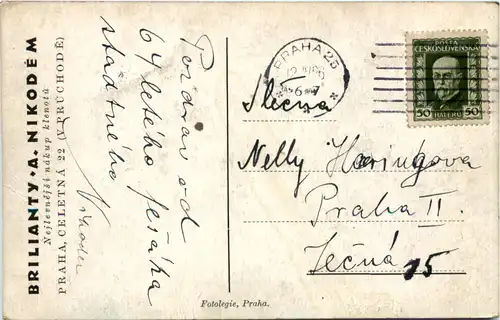 BRILIANTY • A • NIKODÉM
Nejlevnější nákup klenotů
PRAHA, CELETNÁ 22 (V PRŮCHODĚ)
Pozdrav od
64 letého ješáha
statného
PRAHA 25
POŠTA
ČESKOSLOVENSKÁ
50 HALÉŘŮ 50
Slečna
Nelly Haringova
Praha II.
Ječná 15
Fotolegie, Praha.